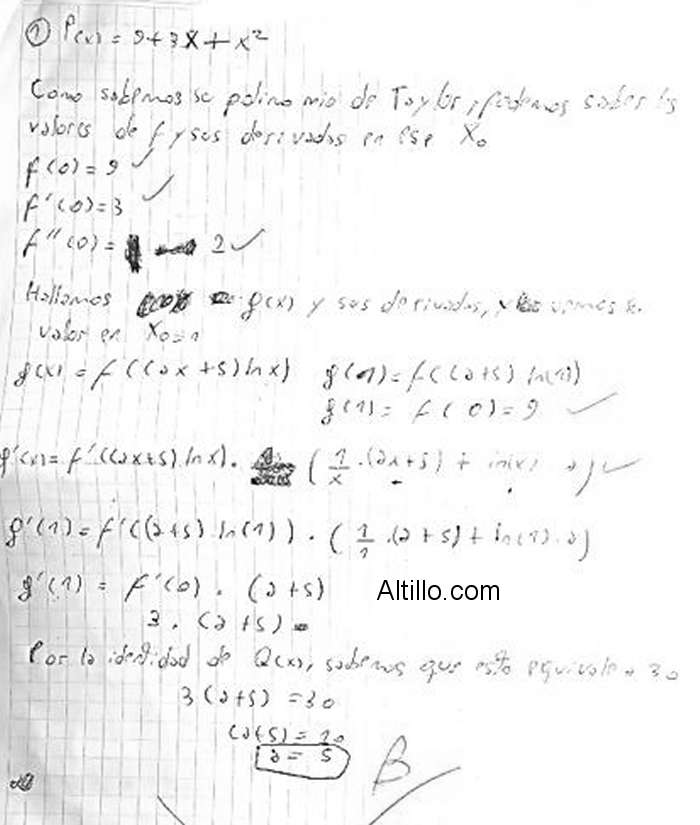 ① P(x) = 9+3x+x²
Como sabemos su polinomio de Taylor, podemos saber los
valores de f y sus derivadas en ese X₀
f(0)=9 ✓
f'(0)=3 ✓
f''(0)= 2 ✓
Hallamos g(x) y sus derivadas, y vemos su
valor en X₀=1
g(x) = f((ax+5)lnx) g(1)=f((a+5) ln(1))
g(1) = f(0)=9 ✓
g'(x)=f'((ax+5) lnx). (1/x .(ax+5) + ln(x) a) ✓
g'(1)=f'((a+5).ln(1)) . (1/1 .(a+5)+ln(1).a)
g'(1) = f'(0) . (a+5)
Altillo.com
3 . (a+5) =
Por la identidad de Q(x), sabemos que esto equivale a 30
3(a+5) =30
(a+5)=10
a = 5
B